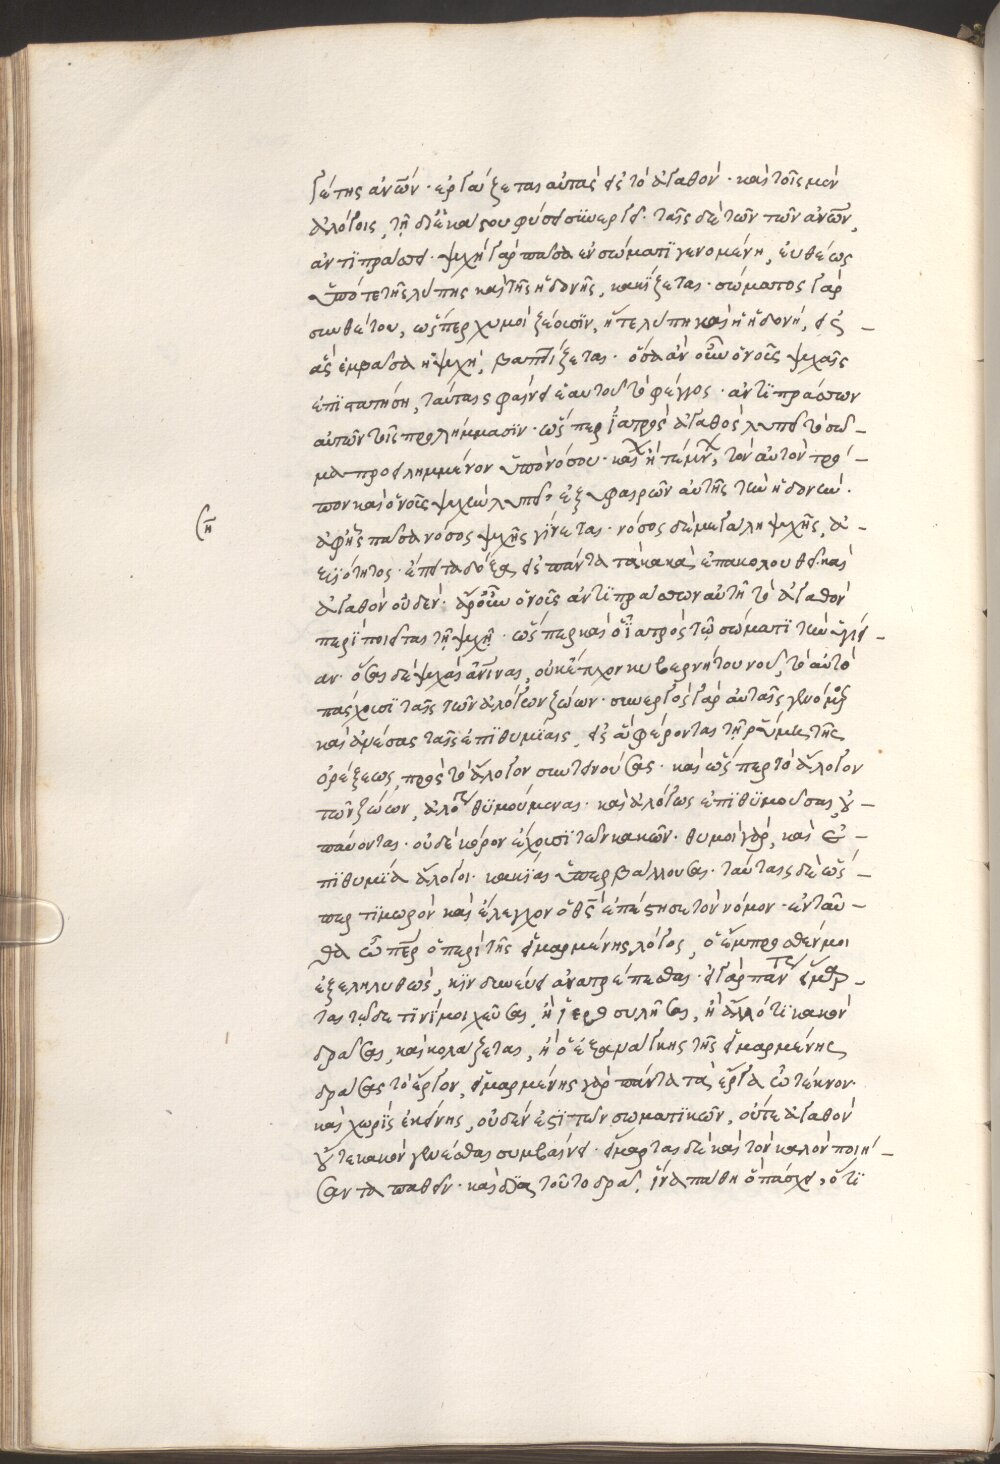 γέτης ἀνῶν· ἐργάζεται αὐτὰς εἰς τὸ ἀγαθόν· καὶ τοῖς μὲν
ἀλόγοις, τῇ διἑκάστου φύσει συνεργεῖ· ταῖς δὲ τῶν τῶν ἀνῶν,
ἀντιπράσσει· ψυχὴ γὰρ πᾶσα ἐν σώματι γενομένη, εὐθέως
ὑπό τε τῆς λύπης καὶ τῆς ἡδονῆς, κακίζεται· σώματος γὰρ
συνθέτου, ὥσπερ χυμοὶ ζέουσιν, ἥ τε λύπη καὶ ἡ ἡδονή, εἰς –
ἃς ἐμβᾶσα ἡ ψυχή, βαπτίζεται· ὅσα ἂν οὖν ὁ νοῦς ψυχαῖς
ἐπιστατήσῃ, ταύταις φαίνει ἑαυτοῦ τὸ φέγγος· ἀντιπράσσων
αὐτῶν τοῖς προλήμμασιν· ὥσπερ ἰατρὸς ἀγαθὸς λυπεῖ τὸ σῶ –
μα προειλημμένον ὑπὸ νόσου· καὶ ἢ τέμν, τὸν αὐτὸν τρό –
πον καὶ ὁ νοῦς ψυχὴν λυπεῖ, ἐξυφαιρῶν αὐτῆς τὴν ἡδονήν·
ἀφἧς πᾶσα νόσος ψυχῆς γίνεται· νόσος δὲ μεγάλη ψυχῆς, ἀ –
θεϊότητος· ἔπειτα δόξα, εἰς πάντα τὰ κακὰ ἐπακολουθεῖ· καὶ
ἀγαθὸν οὐδέν· ἆρ οὖν ὁ νοῦς ἀντιπράσσων αὐτῇ τὸ ἀγαθὸν
περιποιεῖται τῇ ψυχῇ· ὥσπερ καὶ ὁ ἰατρὸς τῷ σώματι τὴν ὑγεί –
αν· ὅσαι δὲ ψυχαὶ ἀνιναι, οὐκ ἔτυχον κυβερνήτου νοῦ, τὸ αὐτὸ
πάσχουσι ταῖς τῶν ἀλόγων ζώων· συνεργὸς γὰρ αὐταῖς γενόμε
καὶ ἀνέσας ταῖς ἐπιθυμίαις, εἰς ἃς φέρονται τῇ ῥύμῃ τῆς
ὀρέξεως, πρὸς τὸ ἄλογον συντεινούσας· καὶ ὥσπερ τὸ ἄλογον
τῶν ζώων, ἀλόγ θυμούμεναι· καὶ ἀλόγως ἐπιθυμοῦσαι, οὐ –
παύονται· οὐδὲ κόρον ἔχουσι τῶν κακῶν· θυμοὶ γὰρ, καὶ ἐ –
πιθυμίαι ἄλογοι· κακίαι ὑπερβάλλουσαι· ταύταις δὲ ὥσ –
περ τιμωρὸν καὶ ἔλεγχον ὁ θς ἐπέστησε τὸν νόμον· ἐνταῦ –
θα ὦ περ ὁ περὶ τῆς εἱμαρμένης λόγος, ὁ ἔμπροσθέν μοι
ἐξεληλυθώς, κινδυνεύει ἀνατρέπεσθαι· εἰ γὰρ πάντ εἵμαρ –
ται τῷδε τινὶ μοιχεῦσαι, ἢ ἱεροσυλῆσαι, ἢ ἄλλό τι κακὸν
δρᾶσαι, καὶ κολάζεται, ἢ ὁ ἐξ ἀνάγκης τῆς εἱμαρμένης
δράσας τὸ ἔργον, εἱμαρμένης γὰρ πάντα τὰ ἔργα ὦ τέκνον·
καὶ χωρὶς ἐκείνης, οὐδέν ἐστι τῶν σωματικῶν, οὔτε ἀγαθὸν
οὔτε κακὸν γενέσθαι συμβαίνει· εἵμαρται δὲ καὶ τὸν καλὸν ποιή –
σαντα παθεῖν· καὶ διὰ τοῦτο δρᾷ, ἵνα πάθῃ ὃ πάσχει, ὅτι